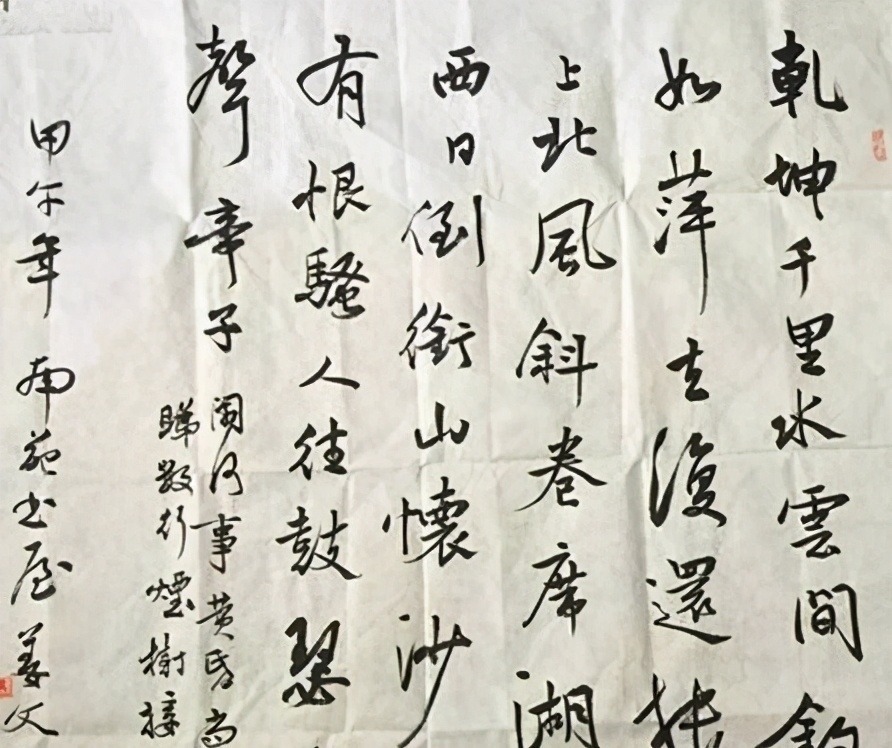 乾坤千里水雲間釣
如萍去復還
上北風斜卷席湖
西日倒銜山懷沙
有恨騷人往鼓瑟
聲帝子
閑何事黃昏尚
睇數行煙樹接
甲午年南苑书屋姜文